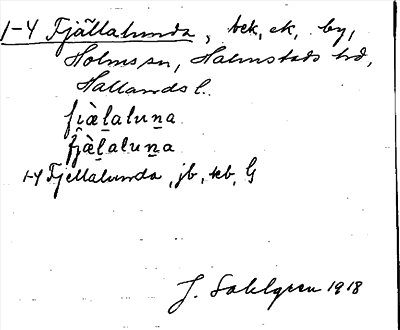 1-4 Fjällalunda, bek, ek, by,
Holms sn, Halmstads hd,
Hallands l.
fi̯æ̀l̠alun̠a
fj̀æl̠alun̠a
1-4 Fjellalunda, jb, kb, G
J. Sahlgren 1918